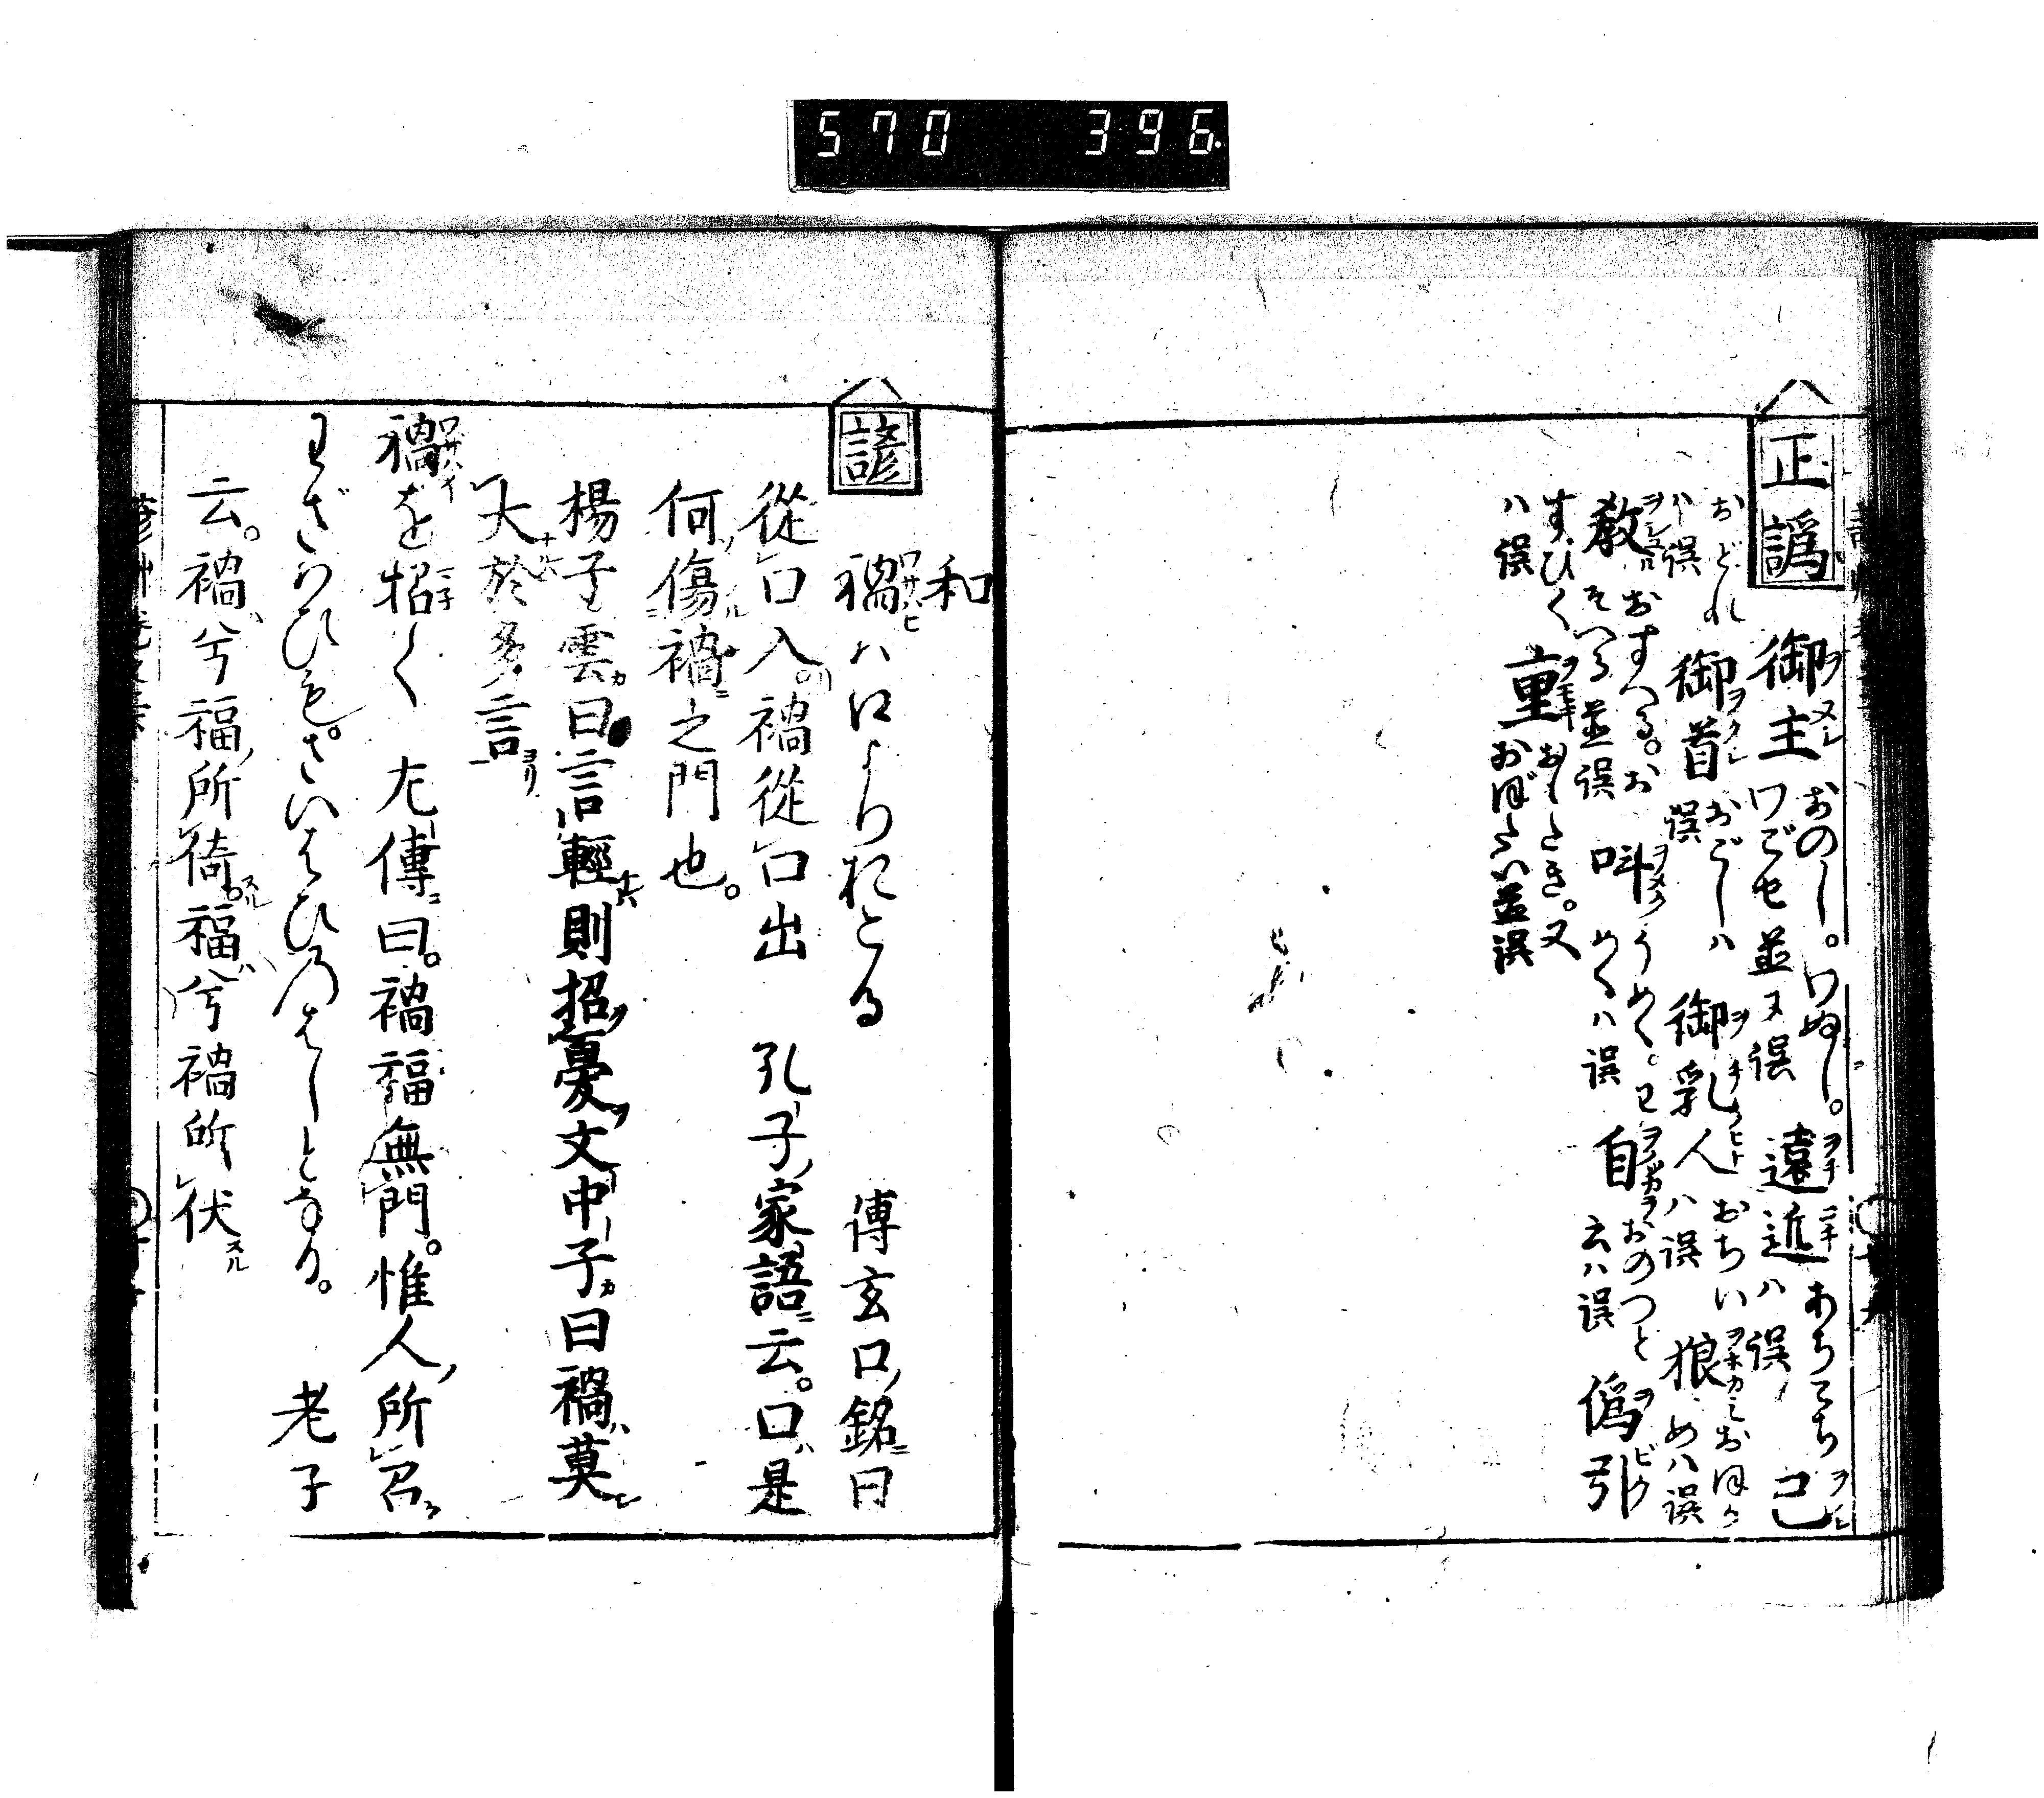 570 396
正譌
御主 おのし。わぬし。
ワごせ並ヌ誤
遠近 あちこち
ハ誤
己
おどれ
ハ誤
御首 おごしハ
誤
御乳人 おちい
ハ誤
狼 おほか
めハ誤
教 おすへる。お
そへる並誤
叫 うめく。
めくハ誤
自 おのつと
云ハ誤
偽引
すひく
ハ誤
重 おしとき。又
並誤
和
諺
禍ハ口よりおこる 傅玄口銘曰
從口入禍從口出 孔子家語云。口是
何傷禍之門也。
楊子雲曰言輕則招憂文中子曰禍莫
大於多言
禍を招く 左傳曰。禍福無門。惟人所召
わざはひも。さいはひのはしとなる。 老子
云。禍兮福所倚福兮禍所伏